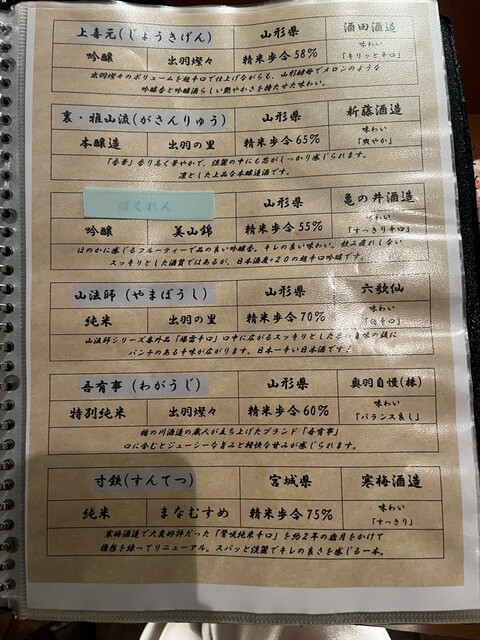 上喜元(じょうきげん) 山形県 酒田酒造
吟醸 出羽燦々 精米歩合58% 味わい「キリッと辛口」
出羽燦々のボリュームを超辛口で仕上げながらも、山形酵母でメロンのような
吟醸香と吟醸酒らしい艶やかさを持たせた味わい。
裏・雅山流(がさんりゅう) 山形県 新藤酒造
本醸造 出羽の里 精米歩合65% 味わい「爽やか」
「香華」香り高く華やかで、淡麗の中にも芯がしっかり感じられます。
凛とした上品な本醸造酒です。
ばくれん 山形県 亀の井酒造
吟醸 美山錦 精米歩合55% 味わい「すっきり辛口」
ほのかに感じるフルーティーで品の良い吟醸香。キレの良い味わい。飲み疲れしない
スッキリとした酒質ではあるが、日本酒度+20の超辛口吟醸です。
山法師(やまぼうし) 山形県 六歌仙
純米 出羽の里 精米歩合70% 味わい 辛口」
山法師シリーズ番外品「爆雷辛口」口中に広がるスッキリとした 味の後に
パンチのある辛味が広がります。日本一辛い日本酒です!
吾有事(わがうじ) 山形県 奥羽自慢(株)
特別純米 出羽燦々 精米歩合60% 味わい「バランス良し」
楯の川酒造の蔵人が立ち上げたブランド「吾有事」
口に含むとジューシーな旨みと軽快な甘みが感じられます。
寸鉄(すんてつ) 宮城県 寒梅酒造
純米 まなむすめ 精米歩合75% 味わい「すっきり」
寒梅酒造で大変好評だった「鶯咲純米辛口」を約2年の歳月をかけて
構想を練ってリニューアル。スパッと淡麗でキレの良さを感じる一本。